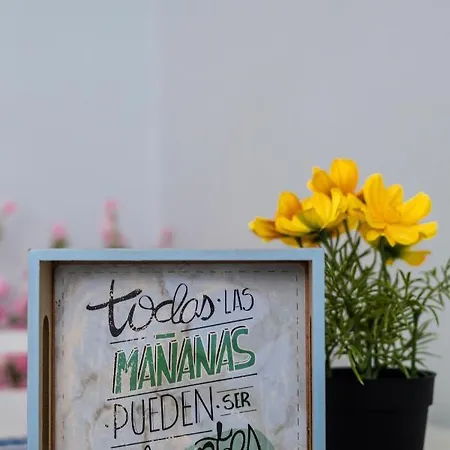 todas · LAS
MAÑANAS
· PUEDEN · SER